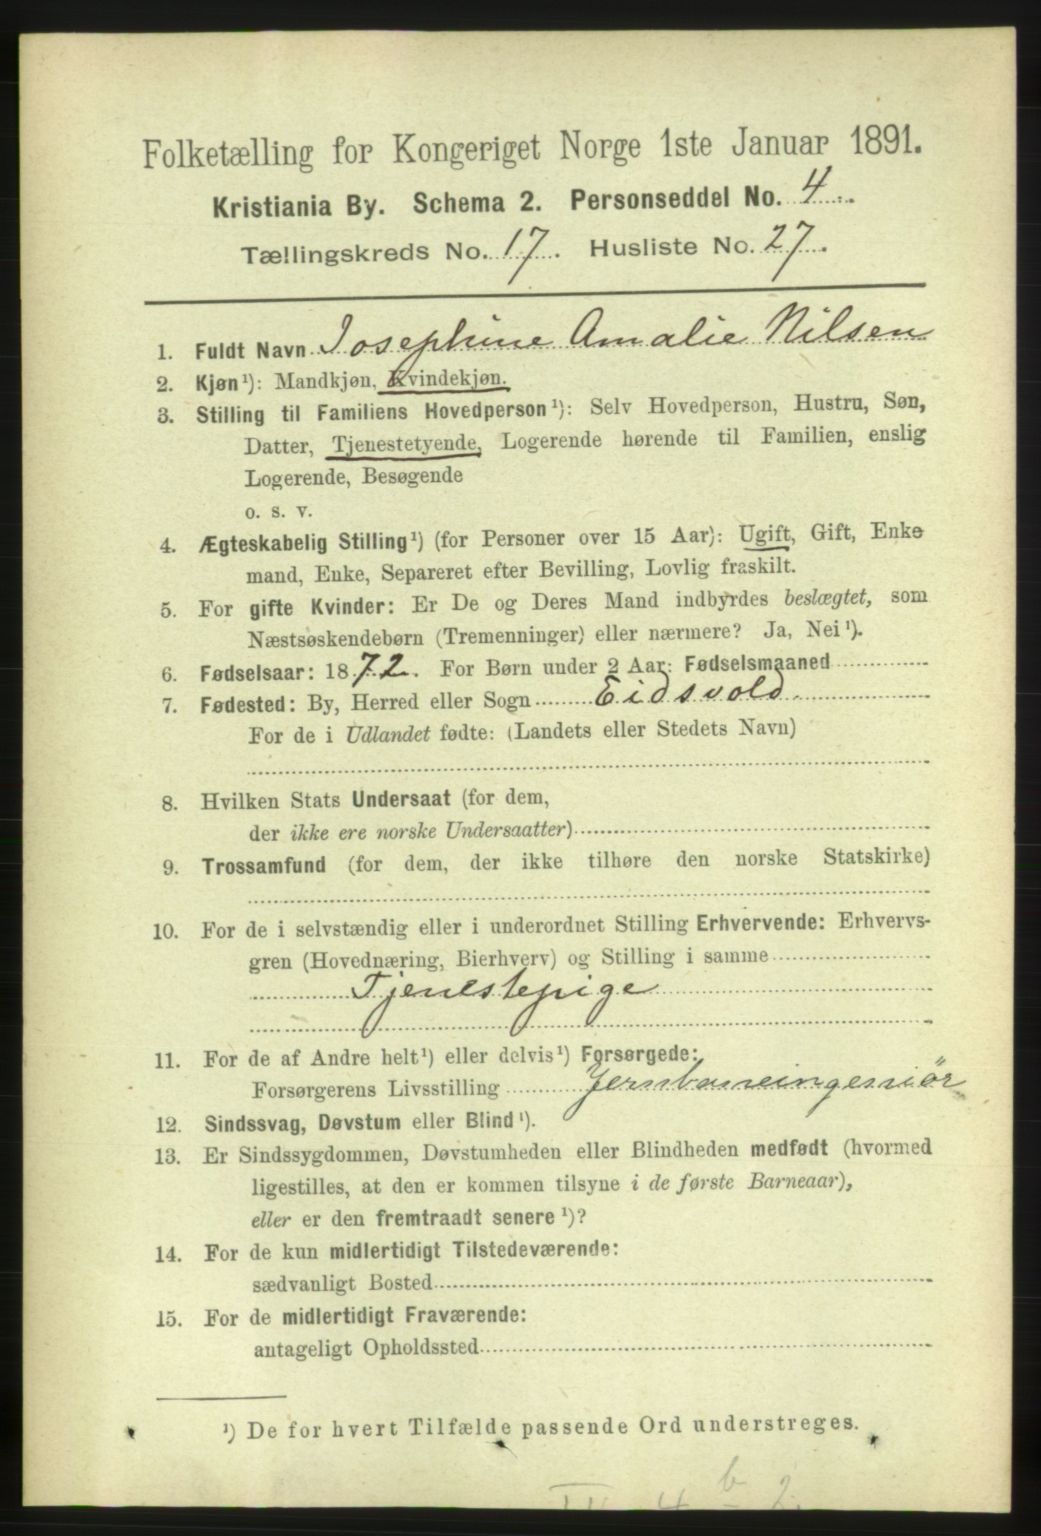 Folketælling for Kongeriget Norge 1ste Januar 1891.
Kristiania By. Schema 2. Personseddel No. 4
Tællingskreds No. 17. Husliste No. 27.
1. Fuldt Navn Josephine Amalie Nilsen
2. Kjøn¹): Mandkjøn, Kvindekjøn.
3. Stilling til Familiens Hovedperson¹): Selv Hovedperson, Hustru, Søn,
Datter, Tjenestetyende, Logerende hørende til Familien, enslig
Logerende, Besøgende
o. s. v.
4. Ægteskabelig Stilling¹) (for Personer over 15 Aar): Ugift, Gift, Enke
mand, Enke, Separeret efter Bevilling, Lovlig fraskilt.
5. For gifte Kvinder: Er De og Deres Mand indbyrdes beslægtet, som
Næstsøskendebørn (Tremenninger) eller nærmere? Ja, Nei¹).
6. Fødselsaar: 1872. For Børn under 2 Aar: Fødselsmaaned
7. Fødested: By, Herred eller Sogn Eidsvold
For de i Udlandet fødte: (Landets eller Stedets Navn)
8. Hvilken Stats Undersaat (for dem,
der ikke ere norske Undersaatter)
9. Trossamfund (for dem, der ikke tilhøre den norske Statskirke)
10. For de i selvstændig eller i underordnet Stilling Erhvervende: Erhvervs-
gren (Hovednæring, Bierhverv) og Stilling i samme
Tjenestepige
11. For de af Andre helt¹) eller delvis¹) Forsørgede:
Forsørgerens Livsstilling Jernbaneingeniør
12. Sindssvag, Døvstum eller Blind¹).
13. Er Sindssygdommen, Døvstumheden eller Blindheden medfødt (hvormed
ligestilles, at den er kommen tilsyne i de første Barneaar),
eller er den fremtraadt senere¹)?
14. For de kun midlertidigt Tilstedeværende:
sædvanligt Bosted
15. For de midlertidigt Fraværende:
antageligt Opholdssted
¹) De for hvert Tilfælde passende Ord understreges.
4 b 2.